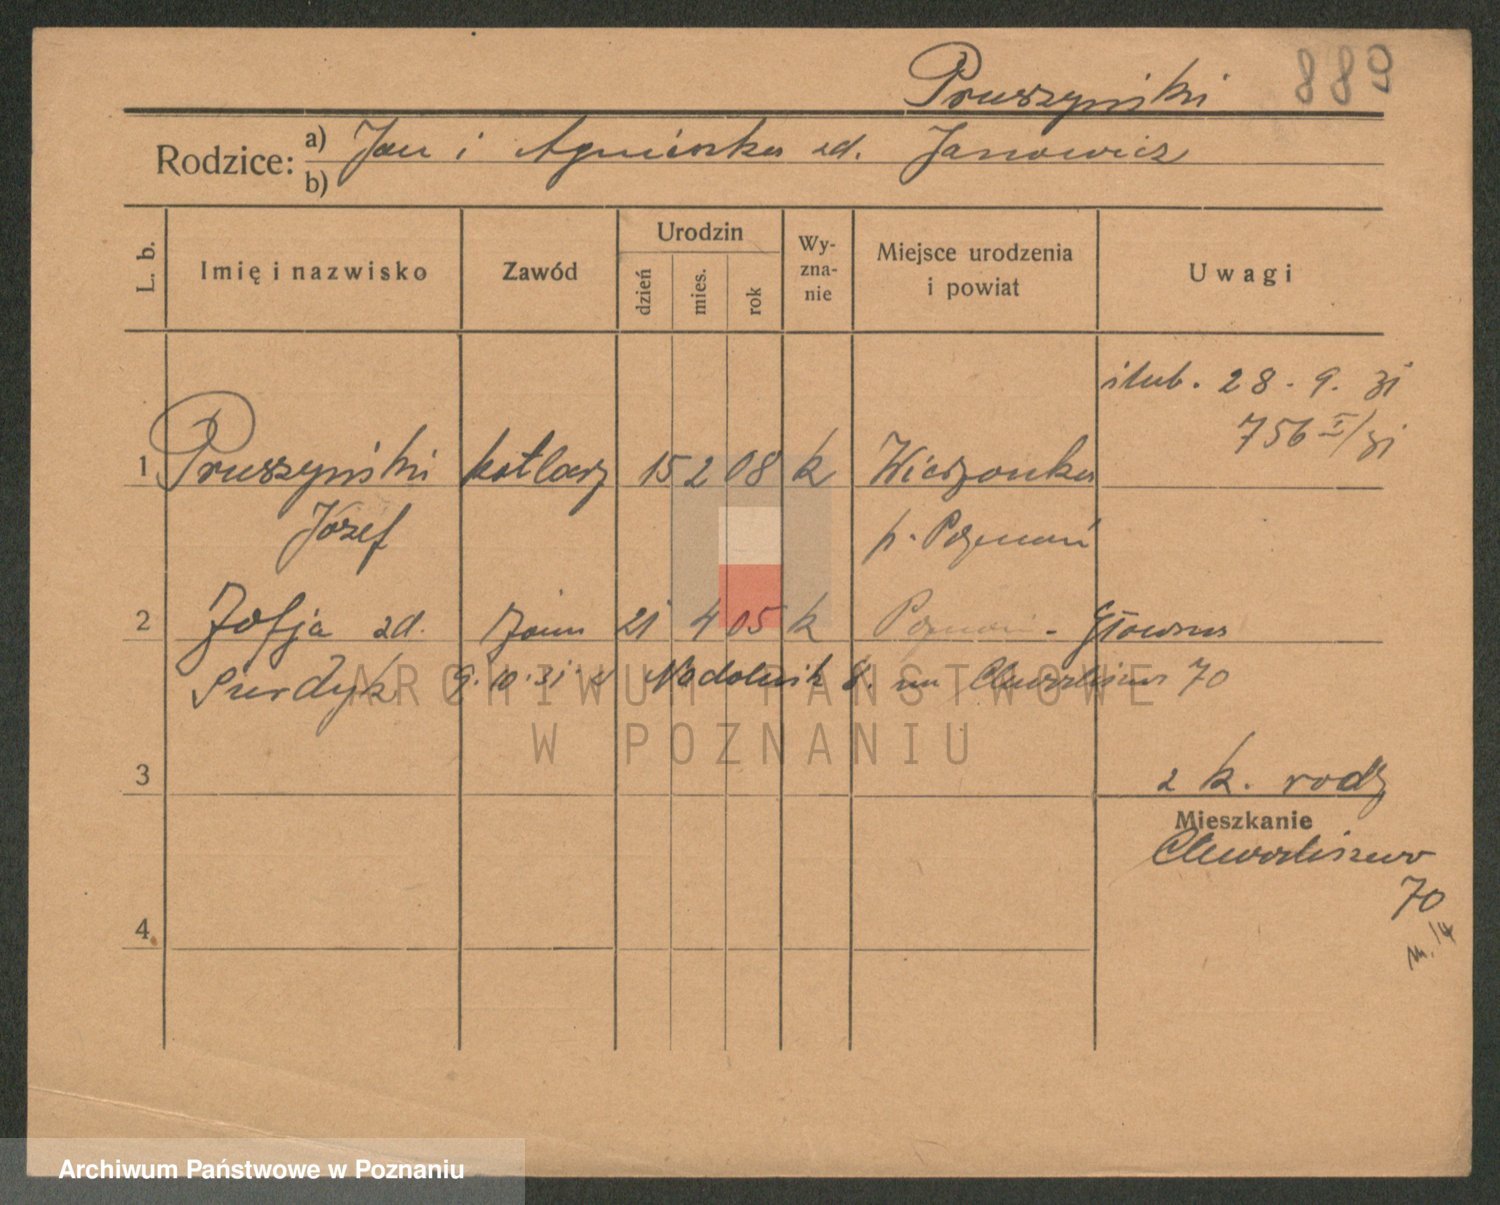 Pruszyński 889
Rodzice: a) Jan i Agnieszka zd. Janowicz
b)
L. b.
Imię i nazwisko
Zawód
Urodzin
dzień
mies.
rok
Wy-
zna-
nie
Miejsce urodzenia
i powiat
Uwagi
ślub. 28. 9. 31
756 I/31
1 Pruszyński kotlarz 15 2 08 k Wierzonka
Józef p. Poznań
2 Zofja zd. żona 21 4 05 k Poznań - Główna
Surdyk 9.10.31. z Nadolnik 8. na Chwaliszewo 70
ARCHIWUM PAŃSTWOWE
W POZNANIU
3
2 k. rodz
Mieszkanie
Chwaliszewo
70
4
Archiwum Państwowe w Poznaniu